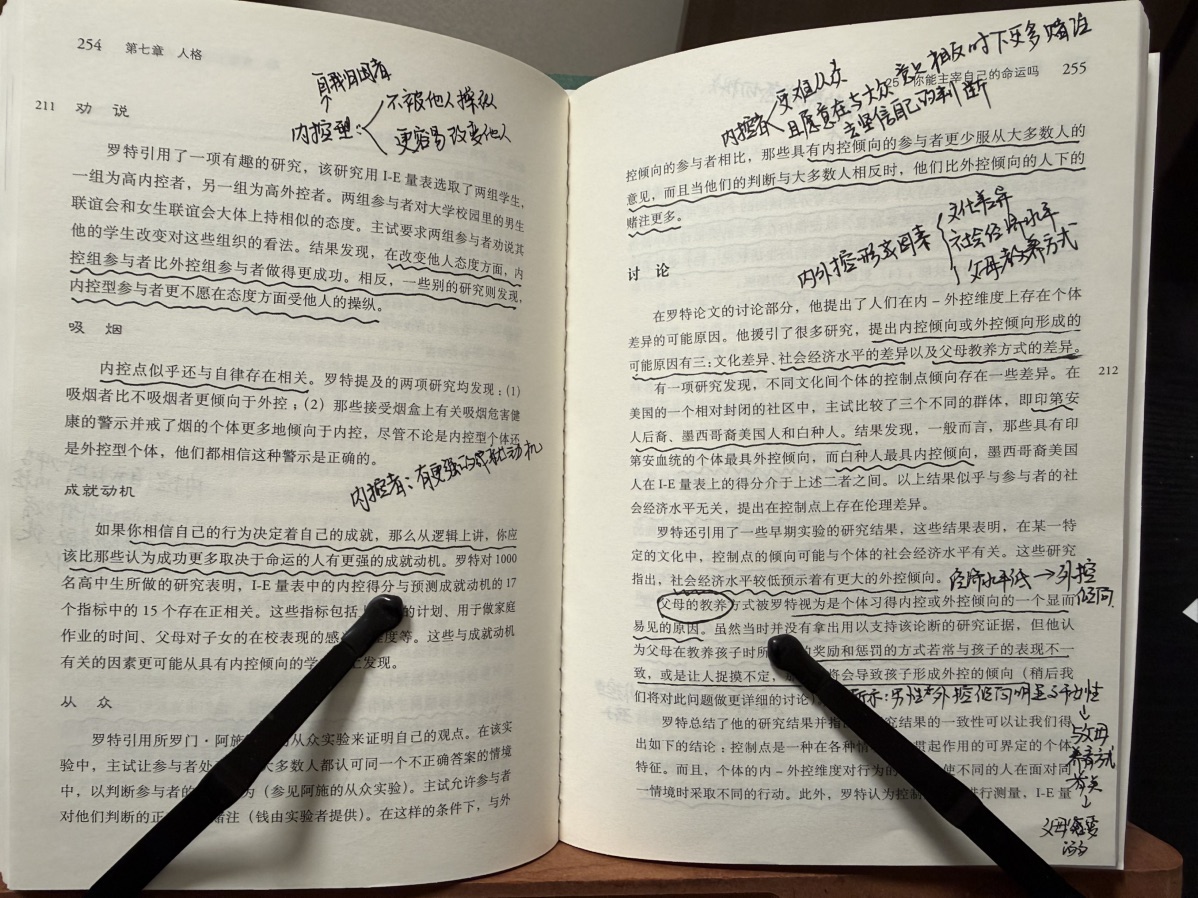 254 第七章 人格
自我归因者
↑
内控型：
不被他人操纵
更容易改变他人
211
劝 说
罗特引用了一项有趣的研究，该研究用 I-E 量表选取了两组学生，
一组为高内控者，另一组为高外控者。两组参与者对大学校园里的男生
联谊会和女生联谊会大体上持相似的态度。主试要求两组参与者劝说其
他的学生改变对这些组织的看法。结果发现，在改变他人态度方面，内
控组参与者比外控组参与者做得更成功。相反，一些别的研究则发现，
内控型参与者更不愿在态度方面受他人的操纵。
吸 烟
内控点似乎还与自律存在相关。罗特提及的两项研究均发现：(1)
吸烟者比不吸烟者更倾向于外控；(2) 那些接受烟盒上有关吸烟危害健
康的警示并戒了烟的个体更多地倾向于内控，尽管不论是内控型个体还
是外控型个体，他们都相信这种警示是正确的。
内控者：有更强的成就动机
成就动机
如果你相信自己的行为决定着自己的成就，那么从逻辑上讲，你应
该比那些认为成功更多取决于命运的人有更强的成就动机。罗特对 1000
名高中生所做的研究表明，I-E 量表中的内控得分与预测成就动机的 17
个指标中的 15 个存在正相关。这些指标包括 的计划、用于做家庭
作业的时间、父母对子女的在校表现的感 度等。这些与成就动机
有关的因素更可能从具有内控倾向的学 上发现。
从 众
罗特引用所罗门·阿施 的从众实验来证明自己的观点。在该实
验中，主试让参与者处 大多数人都认可同一个不正确答案的情境
中，以判断参与者的 为（参见阿施的从众实验）。主试允许参与者
对他们判断的正 赌注（钱由实验者提供）。在这样的条件下，与外
25 你能主宰自己的命运吗 255
内控者
更难从众
且愿意在与大众意见相反时下更多赌注
去坚信自己的判断
控倾向的参与者相比，那些具有内控倾向的参与者更少服从大多数人的
意见，而且当他们的判断与大多数人相反时，他们比外控倾向的人下的
赌注更多。
内外控形成因素
文化差异
社会经济水平
父母教养方式
讨 论
在罗特论文的讨论部分，他提出了人们在内－外控维度上存在个体
差异的可能原因。他援引了很多研究，提出内控倾向或外控倾向形成的
可能原因有三：文化差异、社会经济水平的差异以及父母教养方式的差异。
212
有一项研究发现，不同文化间个体的控制点倾向存在一些差异。在
美国的一个相对封闭的社区中，主试比较了三个不同的群体，即印第安
人后裔、墨西哥裔美国人和白种人。结果发现，一般而言，那些具有印
第安血统的个体最具外控倾向，而白种人最具内控倾向，墨西哥裔美国
人在 I-E 量表上的得分介于上述二者之间。以上结果似乎与参与者的社
会经济水平无关，提出在控制点上存在伦理差异。
罗特还引用了一些早期实验的研究结果，这些结果表明，在某一特
定的文化中，控制点的倾向可能与个体的社会经济水平有关。这些研究
指出，社会经济水平较低预示着有更大的外控倾向。
经济水平低→外控倾向
父母的教养方式被罗特视为是个体习得内控或外控倾向的一个显而
易见的原因。虽然当时并没有拿出用以支持该论断的研究证据，但他认
为父母在教养孩子时所 的奖励和惩罚的方式若常与孩子的表现不一
致，或是让人捉摸不定， 将会导致孩子形成外控的倾向（稍后我
们将对此问题做更详细的讨论）
所示：男性外控倾向明显高于女性
↓
与父母
养育方式
有关
↓
父母
罗特总结了他的研究结果并指 究结果的一致性可以让我们得
出如下的结论：控制点是一种在各种情 贯起作用的可界定的个体
特征。而且，个体的内－外控维度对行为的 使不同的人在面对同
一情境时采取不同的行动。此外，罗特认为控制 进行测量，I-E 量